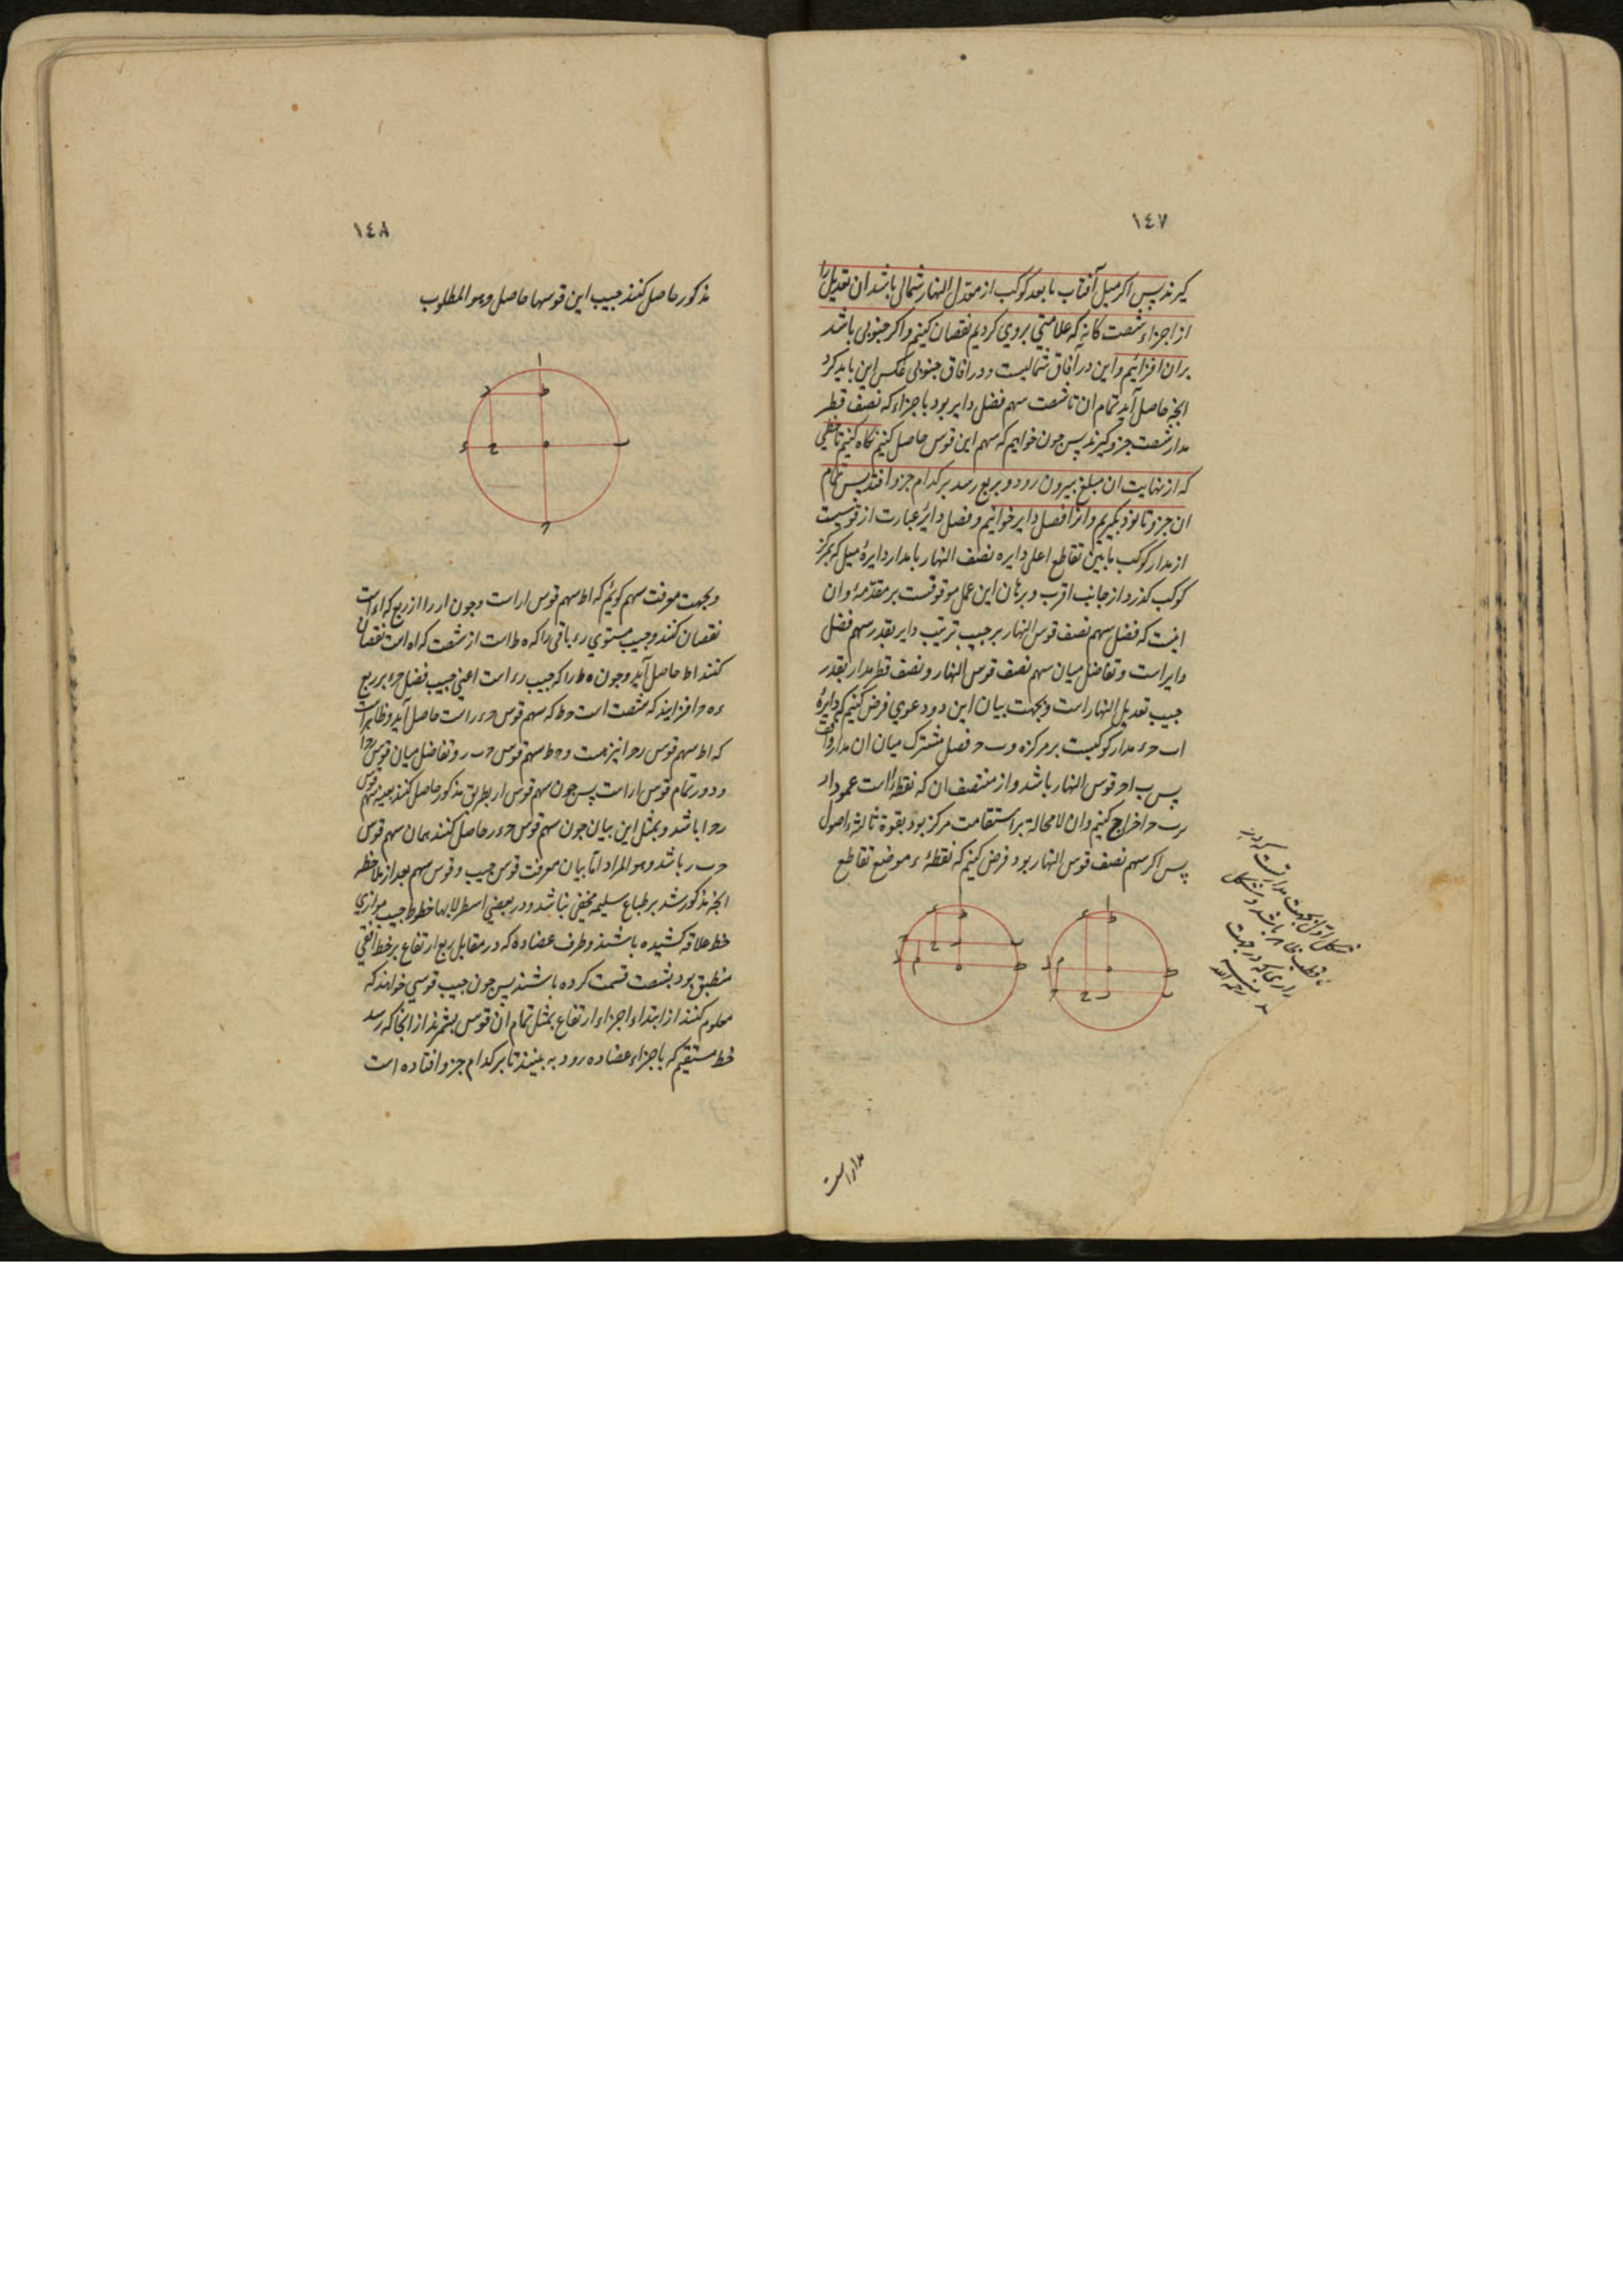 ١٤٧
كيرند پس اكر ميل آفتاب يا بعد كوكب از معدل النهار شمالى باشد ان تعديل را
از اجزاء شصت كانه كه علامتى بروى كرديم نقصان كنيم واكر جنوبى باشد
بران افزائيم واين در آفاق شماليست ودر افاق جنوبى عكس اين بايد كرد
انچه حاصل آيد تمام ان تا شصت سهم فضل داير بود باجزاء كه نصف قطر
مدار شصت جزو كيرند پس چون خواهيم كه سهم اين قوس حاصل كنيم نكاه كنيم تا خطى
كه از نهايت ان مبلغ بيرون رود وبربع رسد بركدام جزو افتد پس تمام
ان جزو تا نود بكيريم وانرا فضل داير خوانيم وفضل داير عبارت از قوسيست
از مدار كوكب ما بين تقاطع اعلى دايره نصف النهار با مدار دايرۀ ميل كه بمركز
كوكب كذرد از جانب اقرب وبرهان اين عمل موقوفست بر مقدمۀ وان
اينست كه فضل سهم نصف قوس النهار بر جيب ترتيب داير بقدر سهم فضل
داير است وتفاضل ميان سهم نصف قوس النهار ونصف قطر مدار بقدر
جيب تعديل النهار است وبجهت بيان اين دو دعوى فرض كنيم كه دايرۀ
اب حء مدار كوكبست بر مركز ه وب ح فصل مشترك ميان ان مدار وافق
پس ب اح قوس النهار باشد واز منتصف ان كه نقطۀ ا است عمود ار
برب ح اخراج كنيم وان لا محالة بر استقامت مركز بود بقوة ثالثۀ اصول
پس اكر سهم نصف قوس النهار بود فرض كنيم كه نقطۀ ء موضع تقاطع
شكل اول بجهت مداريست كه در
مدار است
١٤٨
مذكور حاصل كنند جيب اين قوسها حاصل وهو المطلوب
وبجهت معرفت سهم كوئيم كه اط سهم قوس ار است وچون ار را از ربع كه اء است
نقصان كنند وجيب مستوى رء باقى را كه ه ط است از شصت كه اه است نقصان
كنند اط حاصل آيد وچون ه ط را كه جيب رء است اعنى جيب فضل حء بر ربع
ه ح افزايند كه شصت است حط كه سهم قوس حءر است حاصل آيد وظاهر است
كه اط سهم قوس رح ا نيز هست وحط سهم قوس ح ب ر وتفاضل ميان قوس
ودور تمام قوس ار است پس چون سهم قوس ار بطريق مذكور حاصل كنند بعينه سهم قوس
رح ا باشد وبمثل اين بيان چون سهم قوس حءر حاصل كنند همان سهم قوس
ح ب ر باشد وهو المراد اما بيان معرفت قوس جيب وقوس سهم بعد از ملاحظه
انچه مذكور شد بر طباع سليم مخفى نباشد ودر بعضى اسطرلابها خطوط جيب موازى
خط علاقه كشيده باشند وطرف عضاده كه در مقابل ربع ارتفاع بر خط افقى
منطبق بود بشصت قسمت كرده باشند پس چون جيب قوسى خواهند كه
معلوم كنند از ابتداء اجزاء ارتفاع بمثل تمام ان قوس بشمرند از انجا كه رسد
خط مستقيم كه باجزاء عضاده رود به بينند تا بركدام جزو افتاده است